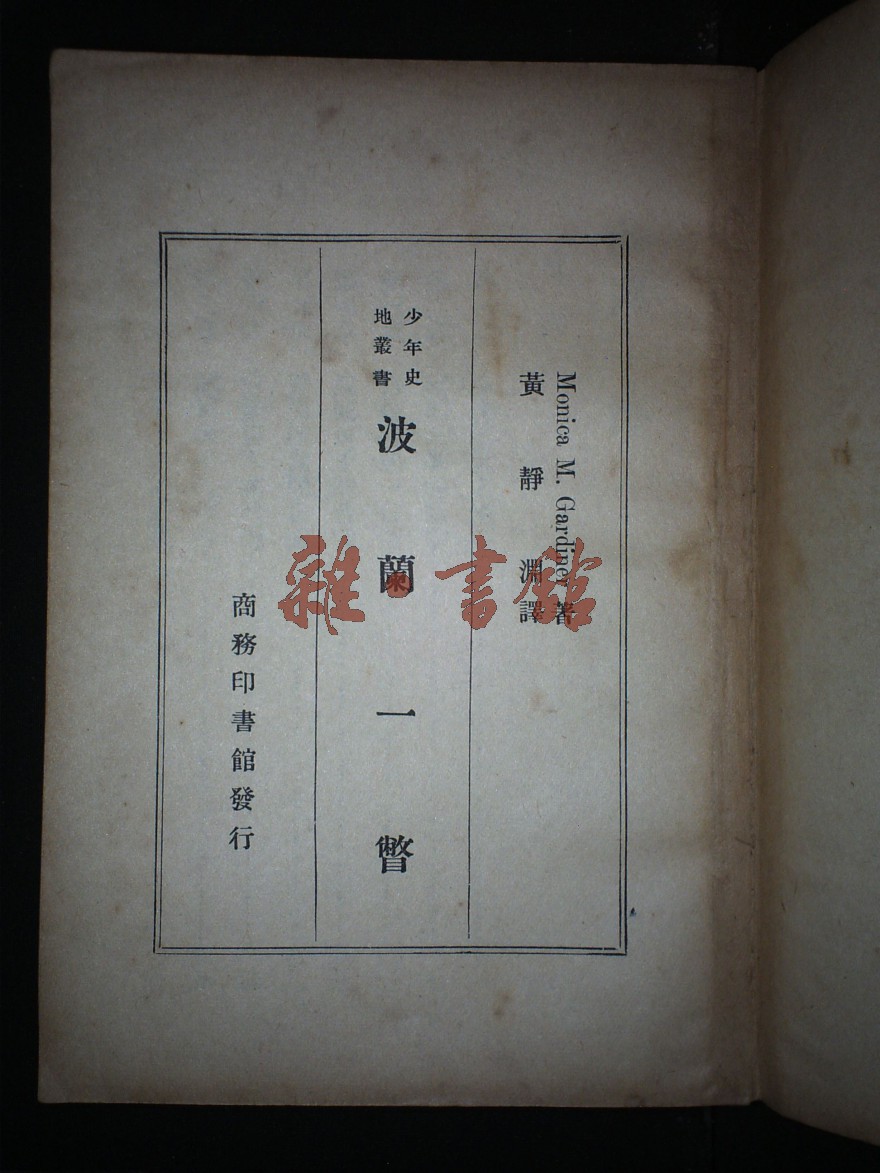 Monica M. Gardiner 著
黃靜淵譯
少年史
地叢書
波蘭一瞥
商務印書館發行
雜·書館